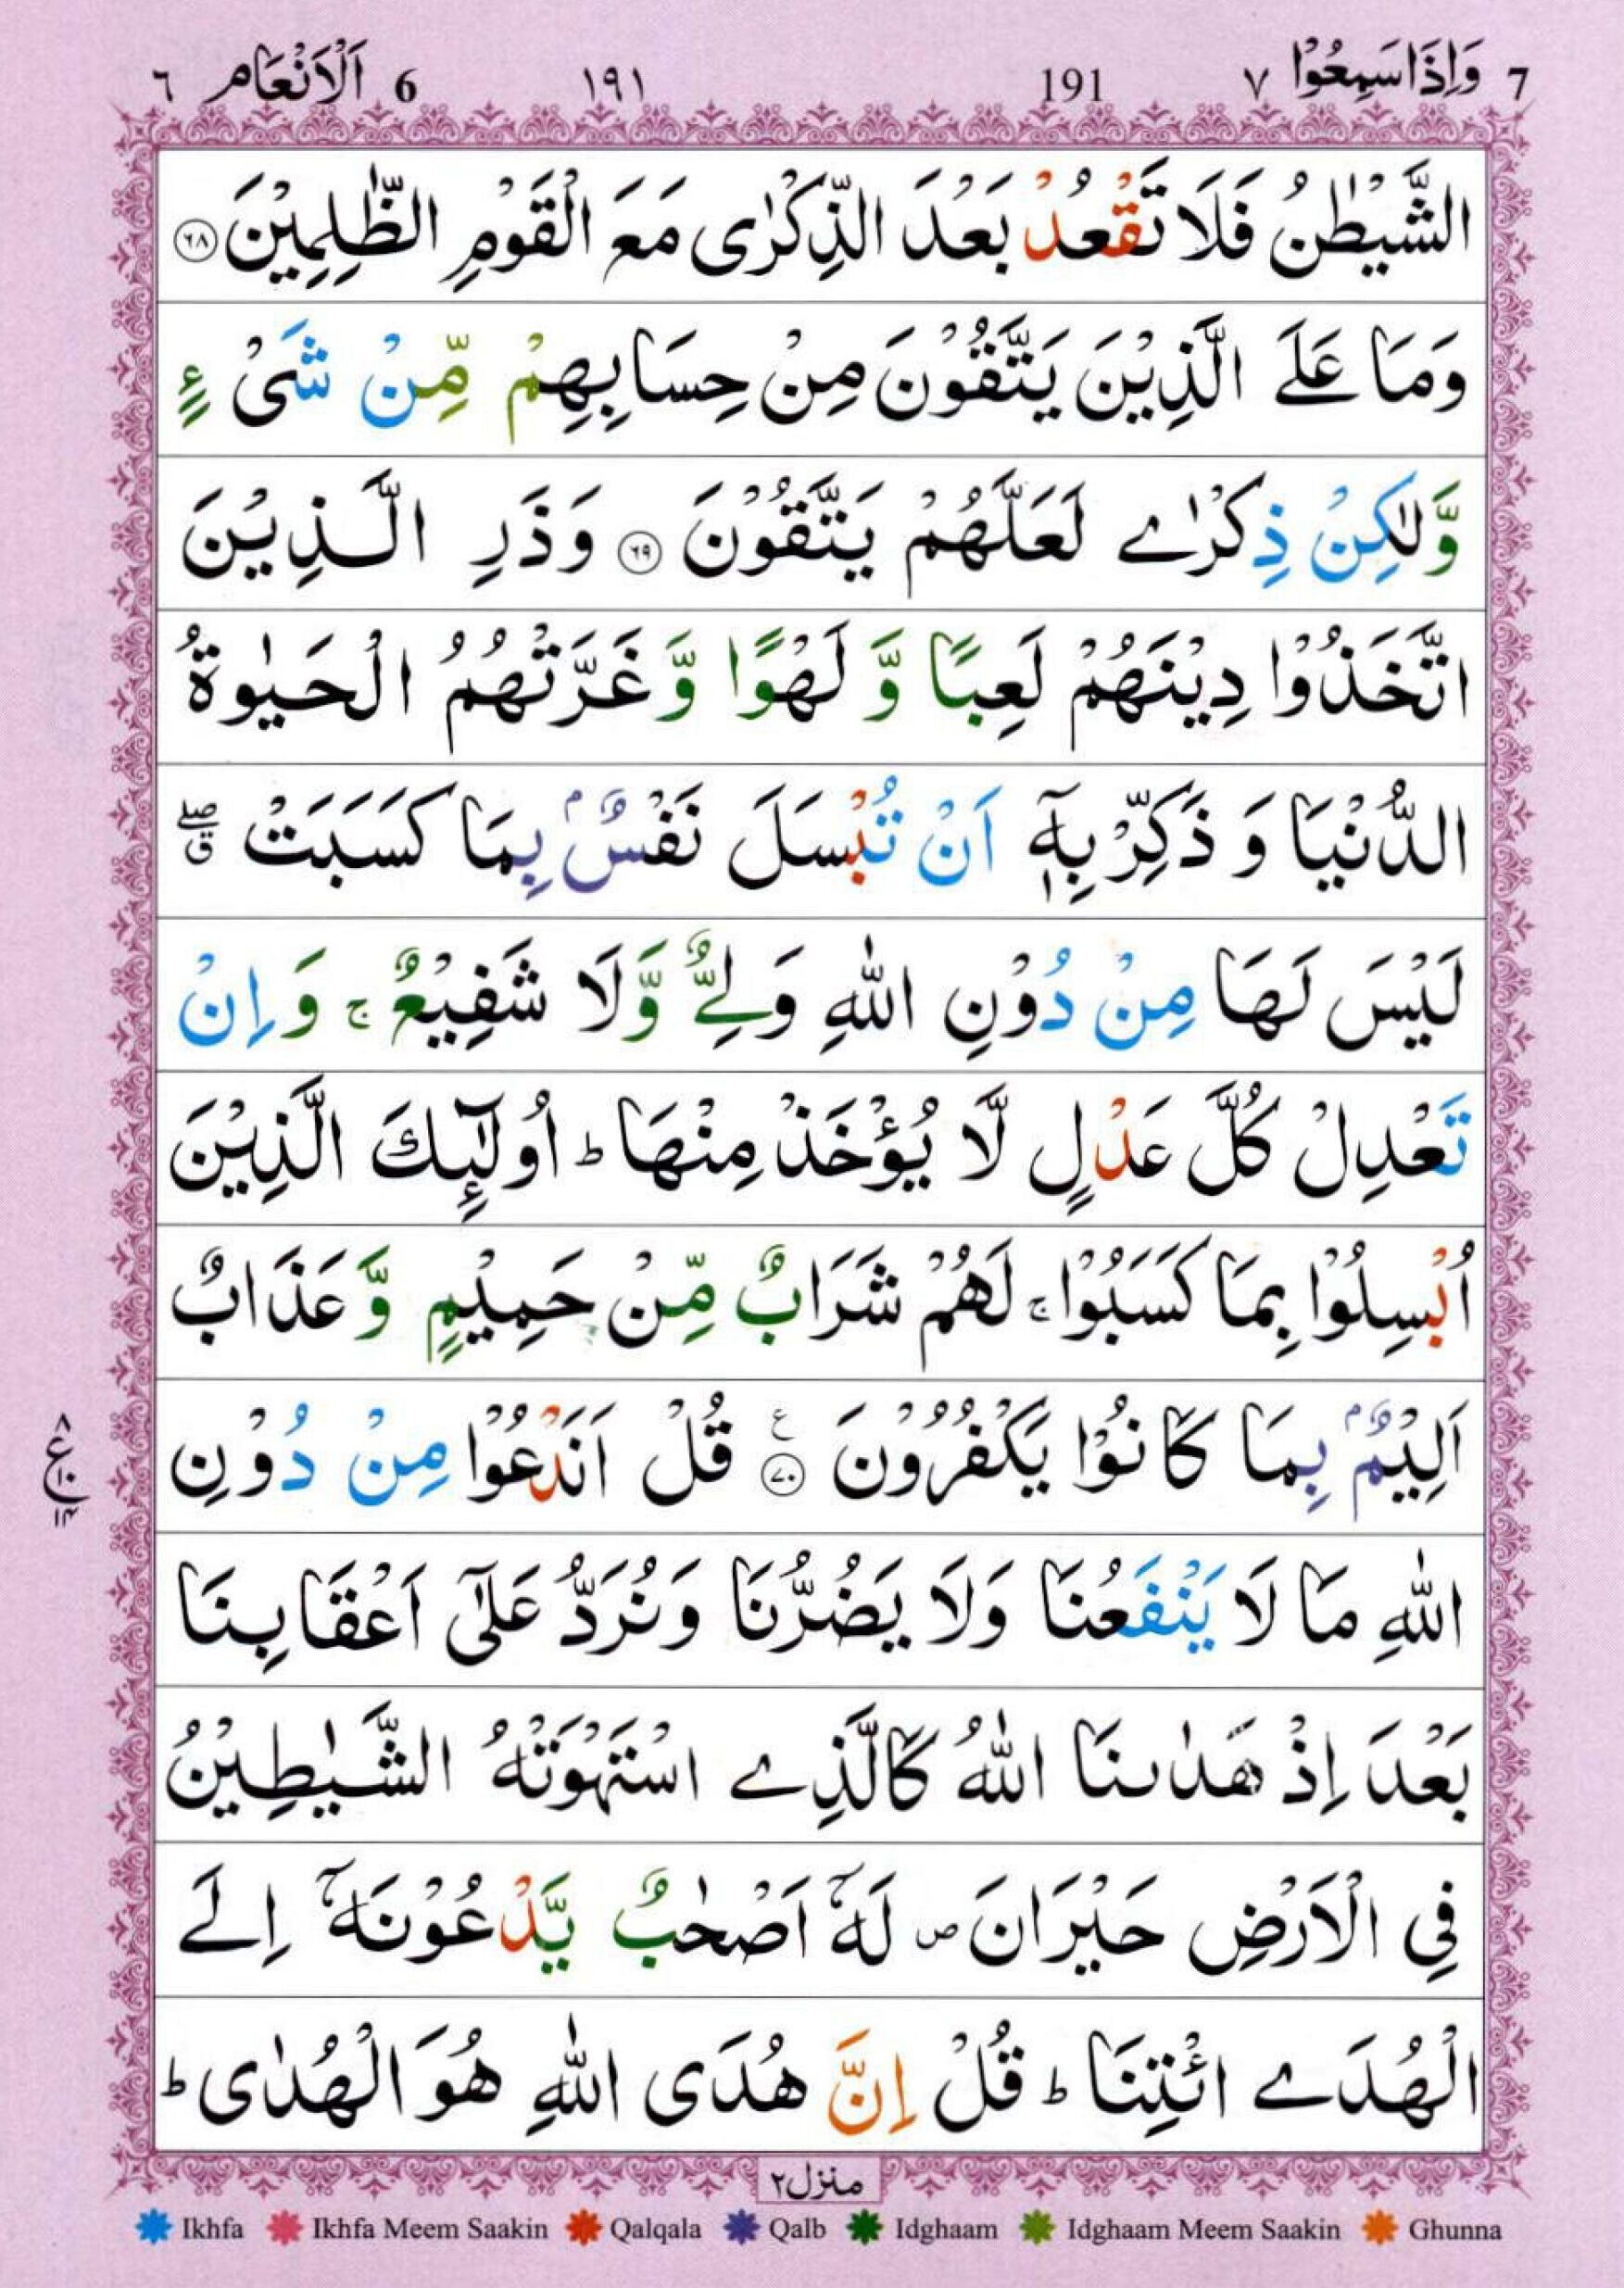 7 وَاِذَا سَمِعُوْا ٧ 191 ١٩١ 6 اَلْاَنْعَام ٦
الشَّيْطٰنُ فَلَا تَقْعُدْ بَعْدَ الذِّكْرٰى مَعَ الْقَوْمِ الظّٰلِمِيْنَ ٦٨
وَمَا عَلَى الَّذِيْنَ يَتَّقُوْنَ مِنْ حِسَابِهِمْ مِّنْ شَىْءٍ
وَّلٰكِنْ ذِكْرٰى لَعَلَّهُمْ يَتَّقُوْنَ ٦٩ وَذَرِ الَّذِيْنَ
اتَّخَذُوْا دِيْنَهُمْ لَعِبًا وَّ لَهْوًا وَّ غَرَّتْهُمُ الْحَيٰوةُ
الدُّنْيَا وَ ذَكِّرْ بِهٖٓ اَنْ تُبْسَلَ نَفْسٌۢ بِمَا كَسَبَتْ ۖق
لَيْسَ لَهَا مِنْ دُوْنِ اللّٰهِ وَلِىٌّ وَّلَا شَفِيْعٌ ۚ وَ اِنْ
تَعْدِلْ كُلَّ عَدْلٍ لَّا يُؤْخَذْ مِنْهَا ؕ اُولٰٓئِكَ الَّذِيْنَ
اُبْسِلُوْا بِمَا كَسَبُوْا ۚ لَهُمْ شَرَابٌ مِّنْ حَمِيْمٍ وَّ عَذَابٌ
اَلِيْمٌۢ بِمَا كَانُوْا يَكْفُرُوْنَ ٧٠ ع قُلْ اَنَدْعُوْا مِنْ دُوْنِ
٨ ع ١٠ ١٤
اللّٰهِ مَا لَا يَنْفَعُنَا وَلَا يَضُرُّنَا وَنُرَدُّ عَلٰٓى اَعْقَابِنَا
بَعْدَ اِذْ هَدٰىنَا اللّٰهُ كَالَّذِى اسْتَهْوَتْهُ الشَّيٰطِيْنُ
فِى الْاَرْضِ حَيْرَانَ ص لَهٗٓ اَصْحٰبٌ يَّدْعُوْنَهٗٓ اِلَى
الْهُدَى ائْتِنَا ؕ قُلْ اِنَّ هُدَى اللّٰهِ هُوَ الْهُدٰى ؕ
منزل ٢
Ikhfa Ikhfa Meem Saakin Qalqala Qalb Idghaam Idghaam Meem Saakin Ghunna